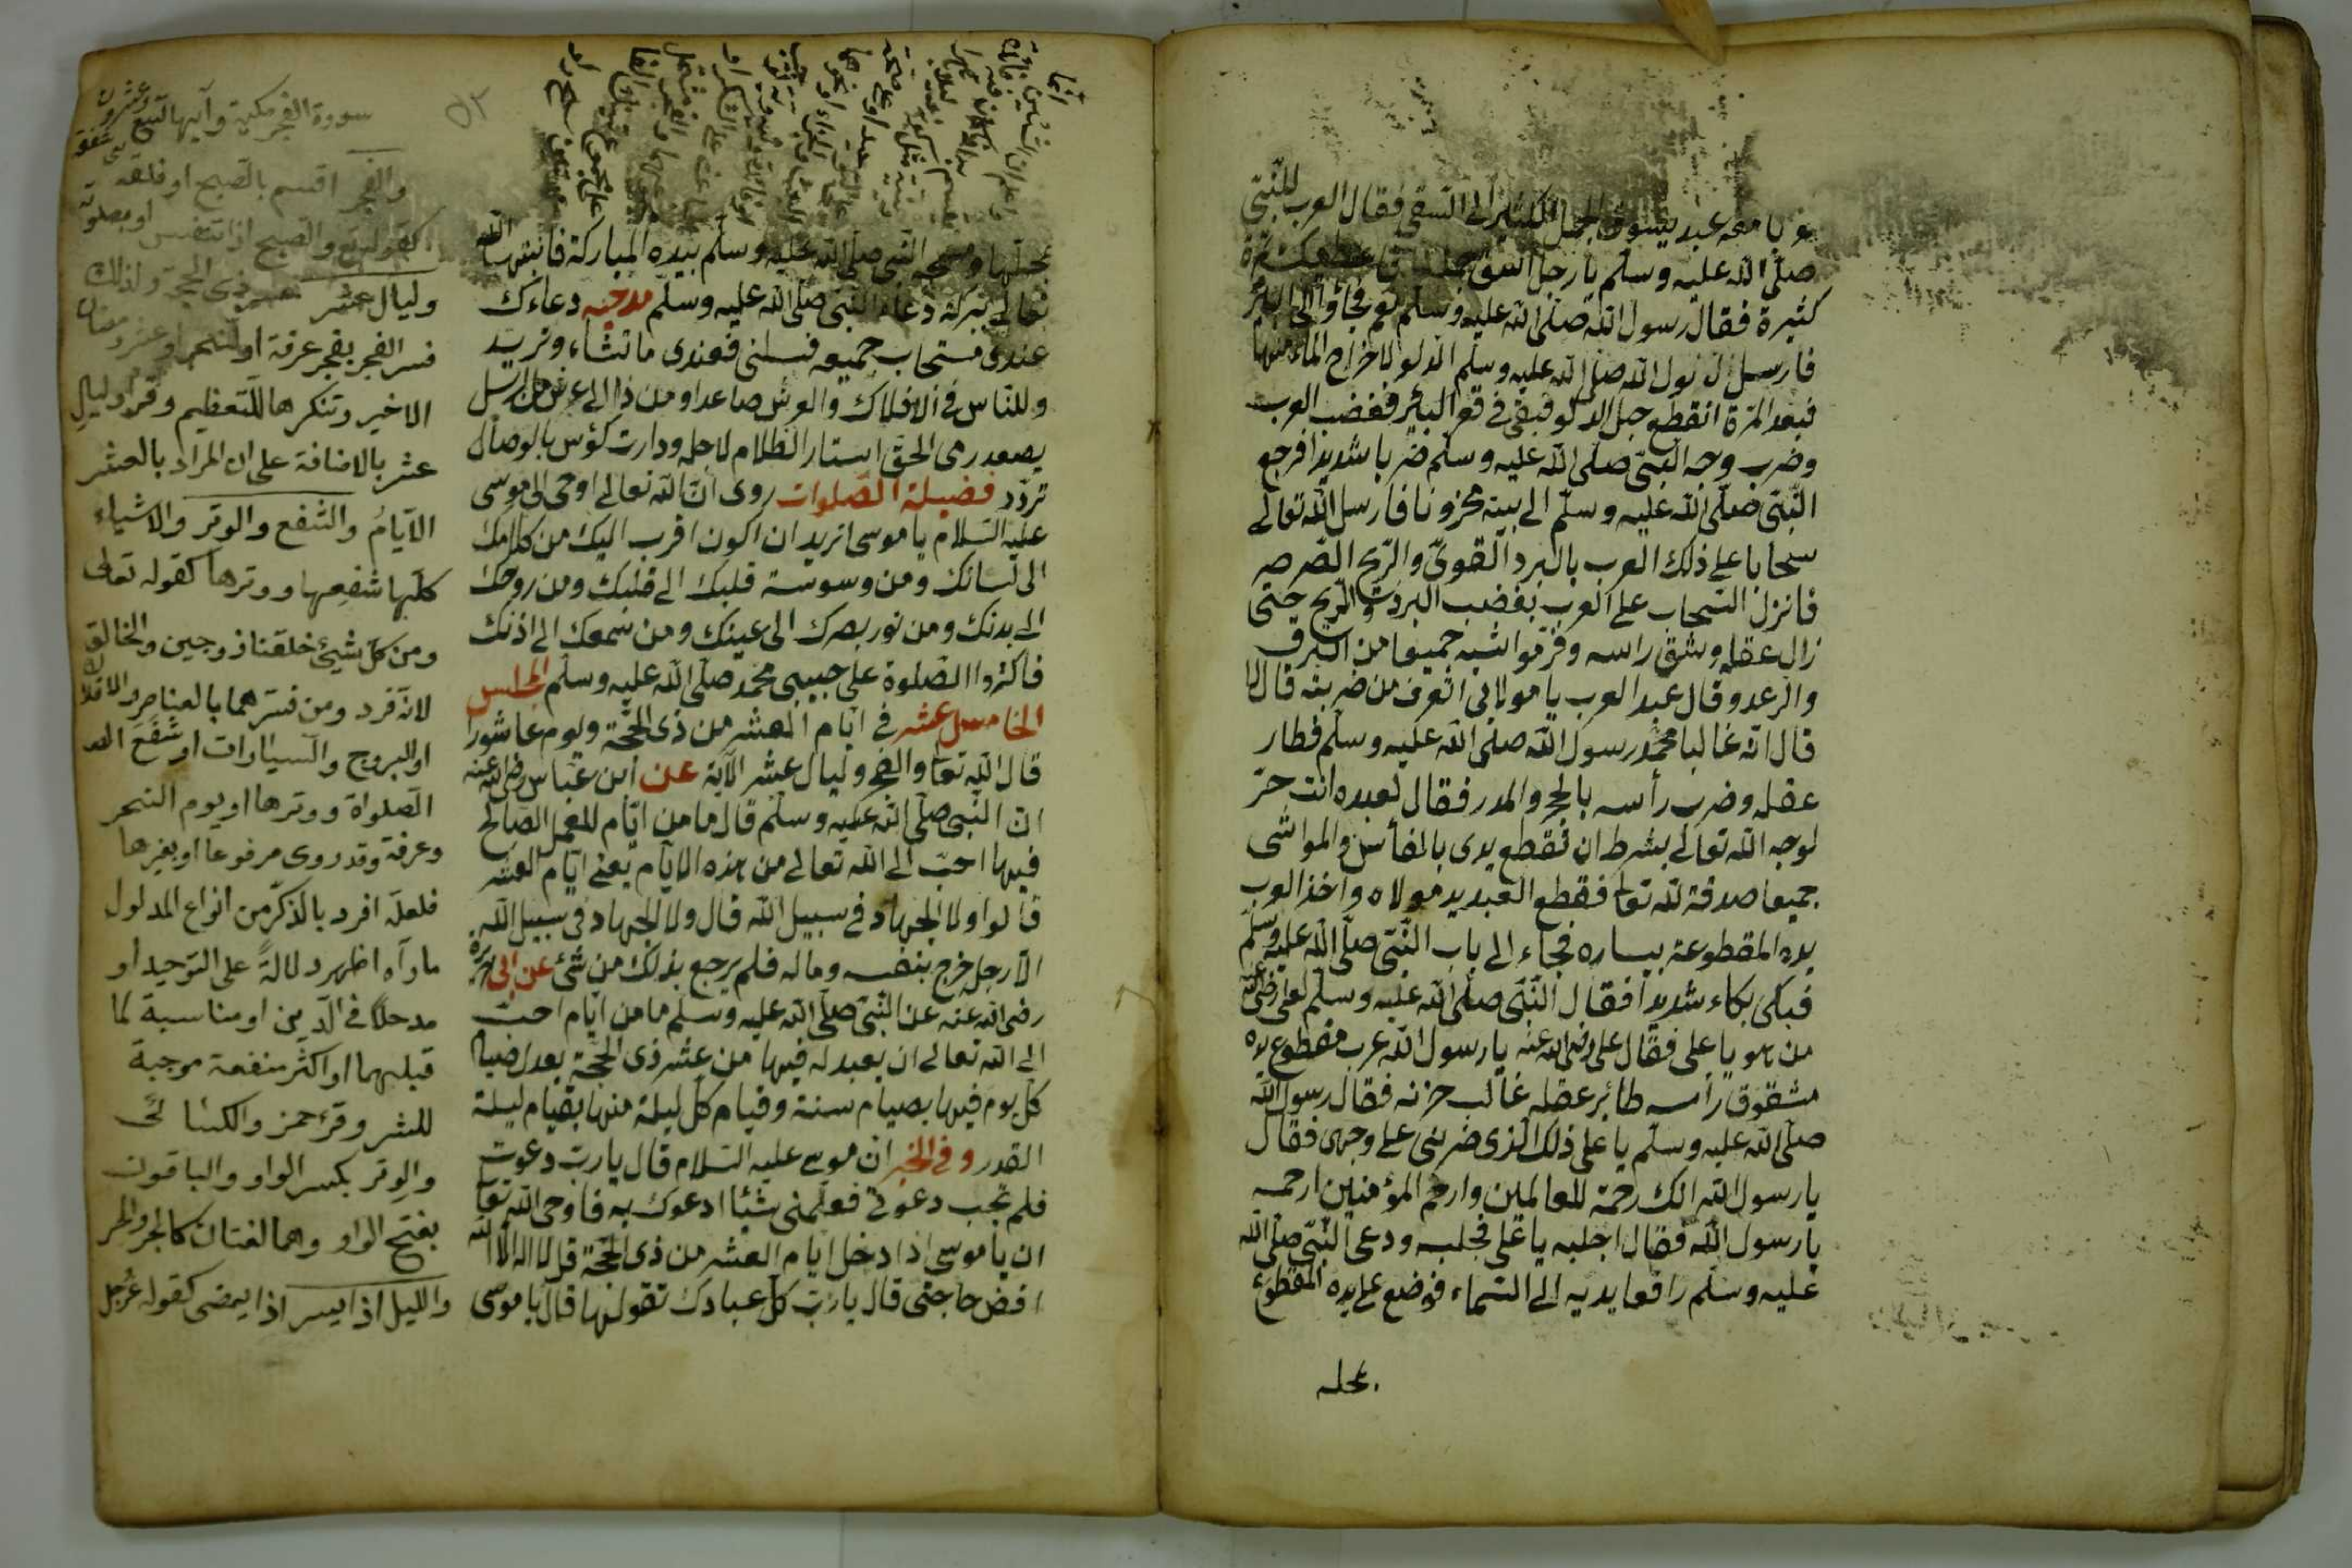 معه عبد يسوق الجمل الى السقى فقال العرب للنبى
صلى الله عليه وسلم يا رجل تمرة
كثيرة فقال رسول الله صلى الله عليه وسلم نعم فجاؤا الى البئر
فارسل رسول الله صلى الله عليه وسلم الدلو لاخراج الماء منها
فبعد المرة انقطع حبل الدلو فبقى فى قعر البئر فغضب العرب
وضرب وجه النبى صلى الله عليه وسلم ضربا شديدا فرجع
النبى صلى الله عليه وسلم الى بيته محزونا فارسل الله تعالى
سحابا على ذلك العرب بالبرد القوى والريح الصرصر
فانزل السحاب على العرب بغضب البردت والريح حتى
زال عقله وشق راسه جميعا من البرق
والرعد وقال عبد العرب يا مولائى اتعرف من ضربته قال لا
قال انه غالبا محمد رسول الله صلى الله عليه وسلم فطار
عقله وضرب رأسه بالحجر والمدر فقال لعبده انت حر
لوجه الله تعالى بشرط ان تقطع يدى بالفأس والمواشى
جميعا صدقة لله تعا فقطع العبد يد مولاه واخذ العرب
يده المقطوعة بيساره فجاء الى باب النبى صلى الله عليه وسلم
فبكى بكاء شديدا فقال النبى صلى الله عليه وسلم لعلى رضى الله
من هو يا على فقال على رضى الله عنه يا رسول الله عرب مقطوع يده
مشقوق رأسه طائر عقله غالب حزنه فقال رسول الله
صلى الله عليه وسلم يا على ذلك الذى ضربنى على وجهى فقال
يا رسول الله انك رحمة للعالمين وارحم المؤمنين ارحمه
يا رسول الله فقال اجلبه يا على فجلبه ودعى النبى صلى الله
عليه وسلم رافعا يديه الى السماء فوضع على يده المقطوع
بمحله
٥٢
بمحلها ومسحه النبى صلى الله عليه وسلم بيده المباركة فانبتها الله
تعالى ببركة دعاء النبى صلى الله عليه وسلم مدحيه دعاءك
عندى مستجاب جميعه فسلنى فعندى ما تشاء وتريد
وللناس فى الافلاك والعرش صاعدا ومن ذا الى عرش من الرسل
يصعد رمى الحق استار الظلام لاجله ودارت كؤس بالوصال
تردد فضيلة الصلوات روى ان الله تعالى اوحى الى موسى
عليه السلام يا موسى اتريد ان اكون اقرب اليك من كلامك
الى لسانك ومن وسوسة قلبك الى قلبك ومن روحك
الى بدنك ومن نور بصرك الى عينك ومن سمعك الى اذنك
فاكثروا الصلوة على حبيبى محمد صلى الله عليه وسلم المجلس
الخامس عشر فى ايام العشر من ذى الحجة ويوم عاشورا
قال الله تعا والفجر وليال عشر الآية عن ابن عباس رضى الله عنه
ان النبى صلى الله عليه وسلم قال ما من ايام للعمل الصالح
فيها احب الى الله تعالى من هذه الايام يعنى ايام العشر
قالوا ولا الجهاد فى سبيل الله قال ولا الجهاد فى سبيل الله
الا رجل خرج بنفسه وماله فلم يرجع بذلك من شئ عن ابى هريرة
رضى الله عنه عن النبى صلى الله عليه وسلم ما من ايام احب
الى الله تعالى ان يعبد له فيها من عشر ذى الحجة يعدل صيام
كل يوم فيها بصيام سنة وقيام كل ليلة منها بقيام ليلة
القدر وفى الخبر ان موسى عليه السلام قال يا رب دعوت
فلم تجب دعوتى فعلمنى شيئا ادعوك به فاوحى الله تعا
ان يا موسى اذا دخل ايام العشر من ذى الحجة قل لا اله الا الله
اقض حاجتى قال يا رب كل عبادك تقولها قال يا موسى
سورة الفجر مكية وآيها تسع وعشرون
والفجر اقسم بالصبح او فلقه
كقوله تع والصبح اذا تنفس او بصلوته
وليال عشر عشر ذى الحجة ولذلك
فسر الفجر بفجر عرفة او النحر او عشر رمضان
الاخير وتنكيرها للتعظيم وقرء وليال
عشر بالاضافة على ان المراد بالعشر
الايام والشفع والوتر والاشياء
كلها شفعها ووترها كقوله تعالى
ومن كل شيئ خلقنا زوجين والخالق
لانه فرد ومن فسرهما بالعناصر والافلاك
او البروج والسيارات او شفع
الصلواة ووترها او يوم النحر
وعرفة وقد روى مرفوعا او بغيرها
فلعله افرد بالذكر من انواع المدلول
ما رآه اظهر دلالة على التوحيد او
مدخلا فى الدين او مناسبة لما
قبلهما او اكثر منفعة موجبة
للشر وقرء حمز والكسائى
والوتر بكسر الواو والباقون
بفتح الواو وهما لغتان كالحبر والحبر
والليل اذا يسر اذا يمضى كقوله عز وجل